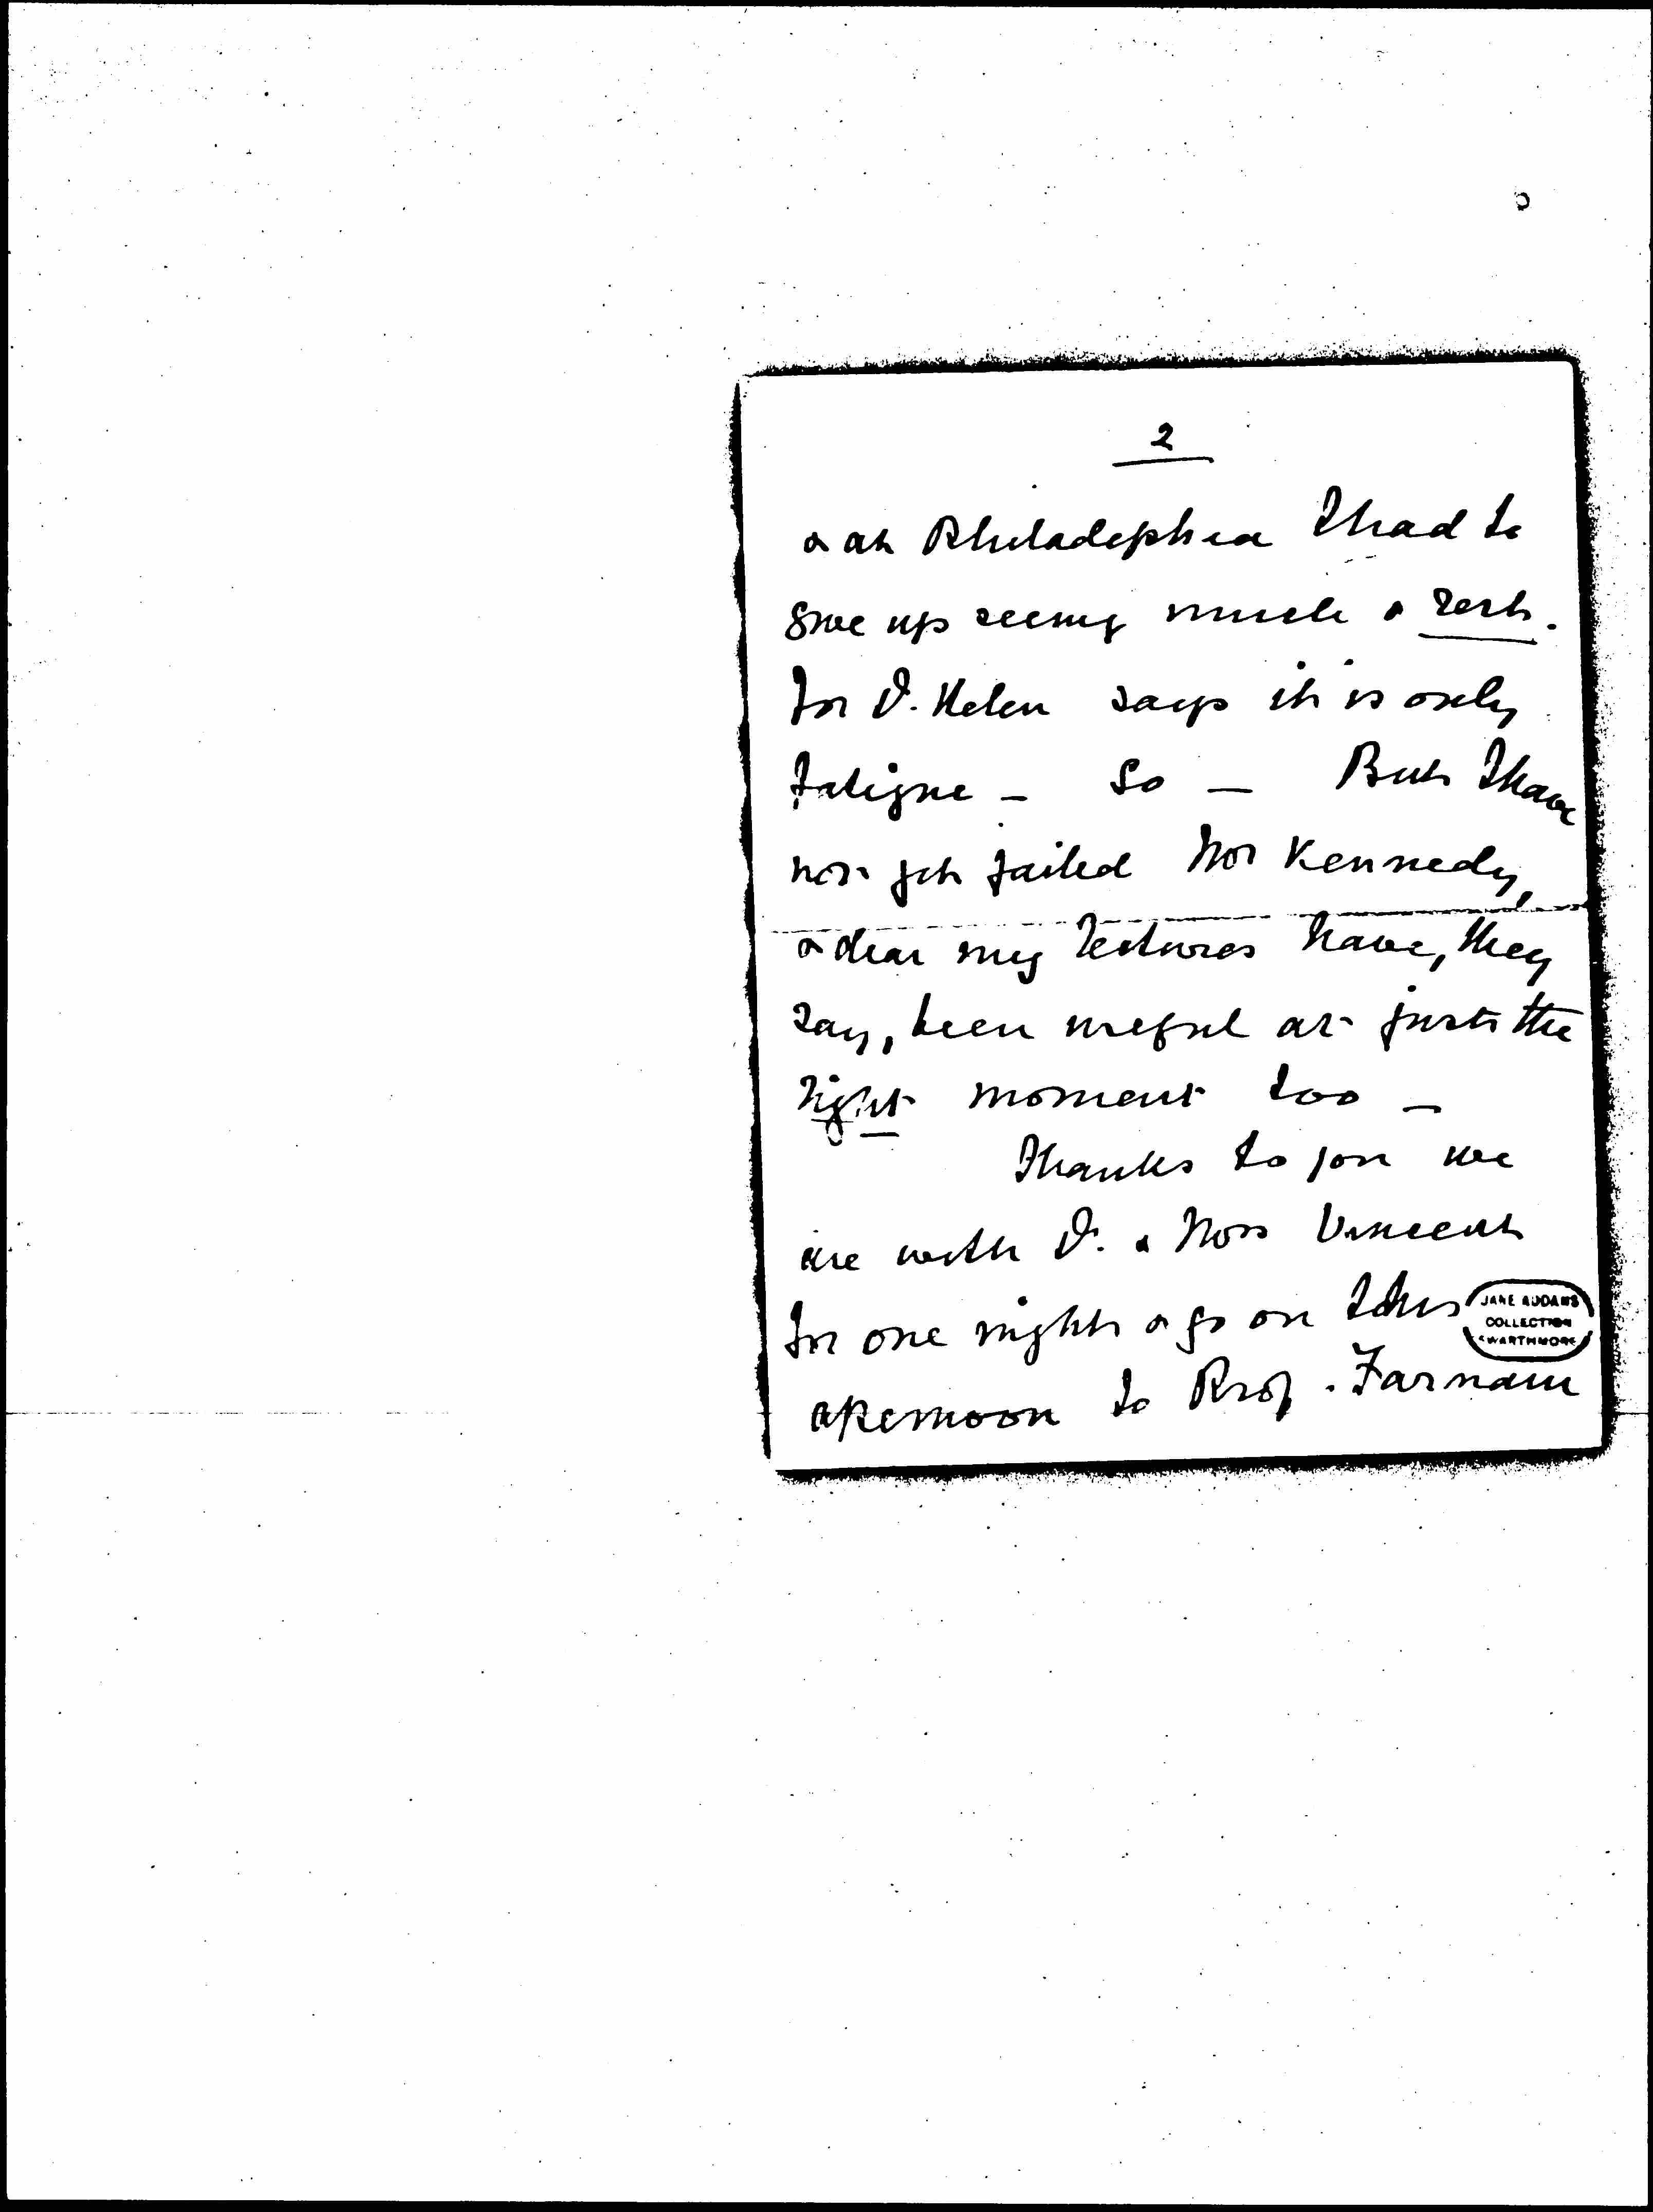 2
& at Philadephia I had to
give up seeing much & rest.
for Dr. Helen says it is only
fatigue - So - But I have
not yet failed Mr Kennedy,
& dear my lectures have, they
say, been useful at just the
right moment too -
Thanks to you we
are with Dr. & Mrs Vincent
for one night & go on this
JANE ADDAMS
COLLECTION
SWARTHMORE
afternoon to Prof. Farnam